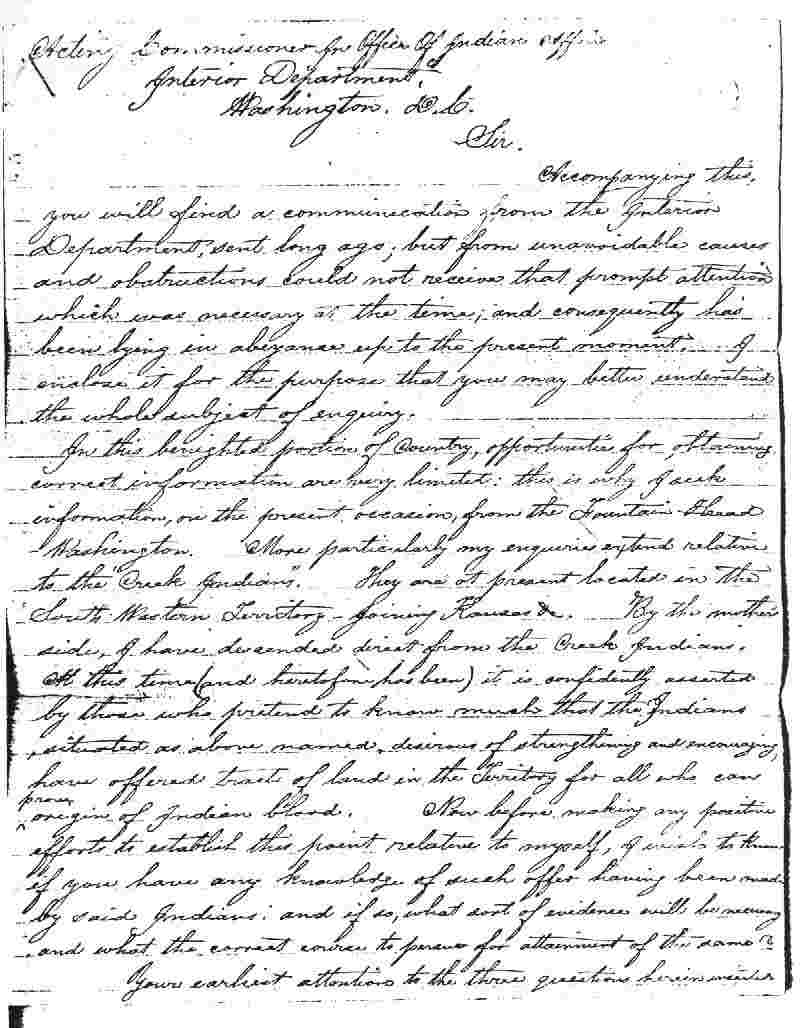 Acting Commissioner In Office Of Indian Affairs
Interior Department,
Washington. D.C.
Sir.
Accompanying this,
you will find a communication from the Interior
Department, sent long ago; but from unavoidable causes
and obstructions could not receive that prompt attention
which was necessary at the time; and consequently has
been lying in abeyance up to the present moment. I
enclose it for the purpose that you may better understand
the whole subject of enquiry.
In this benighted portion of Country, opportunities for obtaining
correct information are very limited: this is why I seek
information, on the present occasion, from the Fountain-Head
Washington. More particularly my enquiries extend relative
to the "Creek Indians". They are at present located in the
South-Western Territory - joining Kansas &c. By the mother
side, I have descended direct from the Creek Indians.
At this time (and heretofore has been) it is confidently asserted
by those who pretend to know much that the Indians
situated as above named, desirous of strengthening and encouraging,
have offered tract of land in the Territory for all who can
prove
origin of Indian blood. Now before making any positive
efforts to establish this point relative to myself, I wish to know
if you have any knowledge of such offer having been made
by said Indians: and if so, what sort of evidence will be necessary
and what the correct course to persue for attainment of the same?
Your earliest attention to the three questions herein